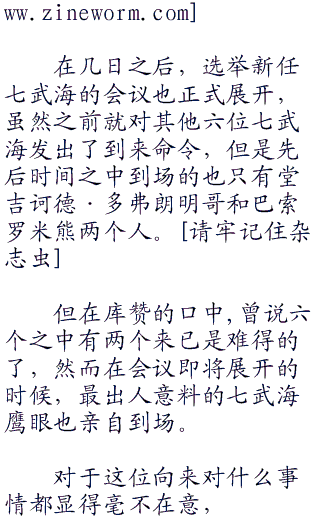 ww.zineworm.com]
在几日之后，选举新任
七武海的会议也正式展开，
虽然之前就对其他六位七武
海发出了到来命令，但是先
后时间之中到场的也只有堂
吉诃德·多弗朗明哥和巴索
罗米熊两个人。[请牢记住杂
志虫]
但在库赞的口中,曾说六
个之中有两个来已是难得的
了，然而在会议即将展开的
时候，最出人意料的七武海
鹰眼也亲自到场。
对于这位向来对什么事
情都显得毫不在意，